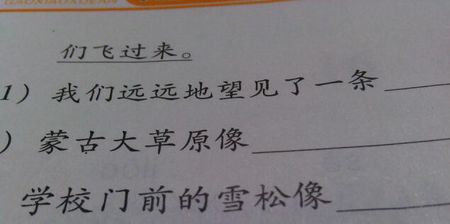 们飞过来。
1) 我们远远地望见了一条______
) 蒙古大草原像______
学校门前的雪松像______